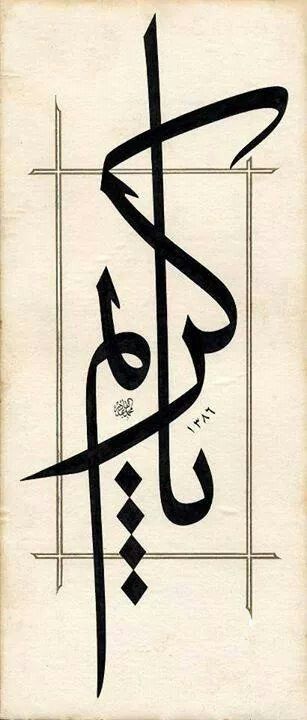 يا كريم
١٣٨٦